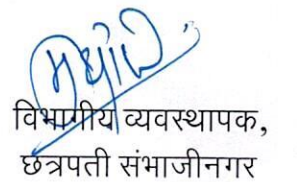 विभागीय व्यवस्थापक,
छत्रपती संभाजीनगर